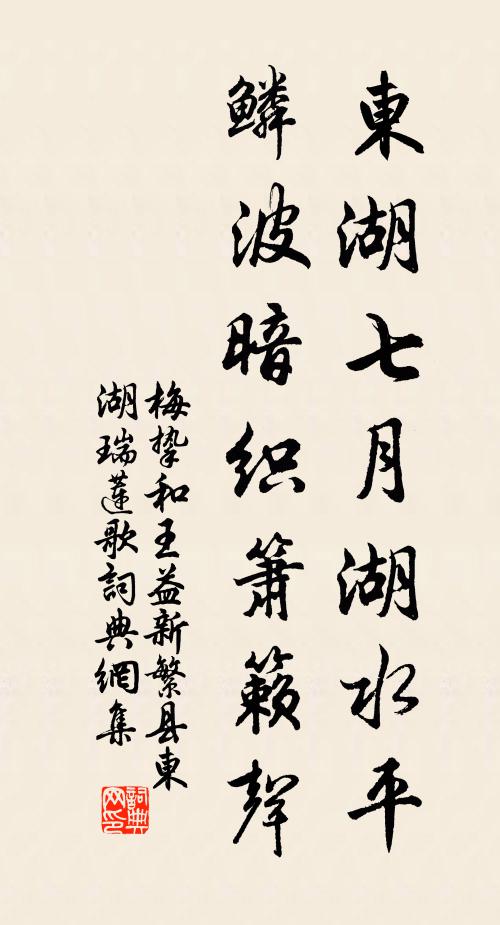 東湖七月湖水平
鳞波暗织箫籟聲
梅挚和王益新繁县東
湖瑞蓮歌詞典網集
詞典网印